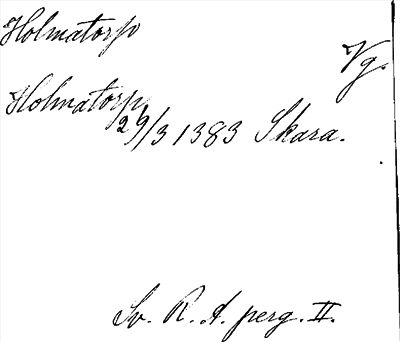 Holmatorp
Vg.
Holmatorp
29/3 1383 Skara.
Sv. R. A. perg. II.